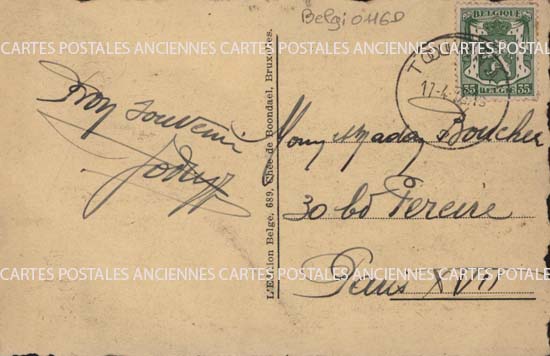 Belgi 0116D
BELGIQUE
35 35
BELGIE
17-4
CARTES POSTALES ANCIENNES CARTES POSTALES ANCIENNES CARTES POSTALES ANCIENNES
Bon souvenir
Mons Madam Boucher
30 bd Pereire
Paris XVII
L'Edition Belge, 689, Chée de Boondael, Bruxelles.
CARTES POSTALES ANCIENNES CARTES POSTALES ANCIENNES CARTES POSTALES ANCIENNES